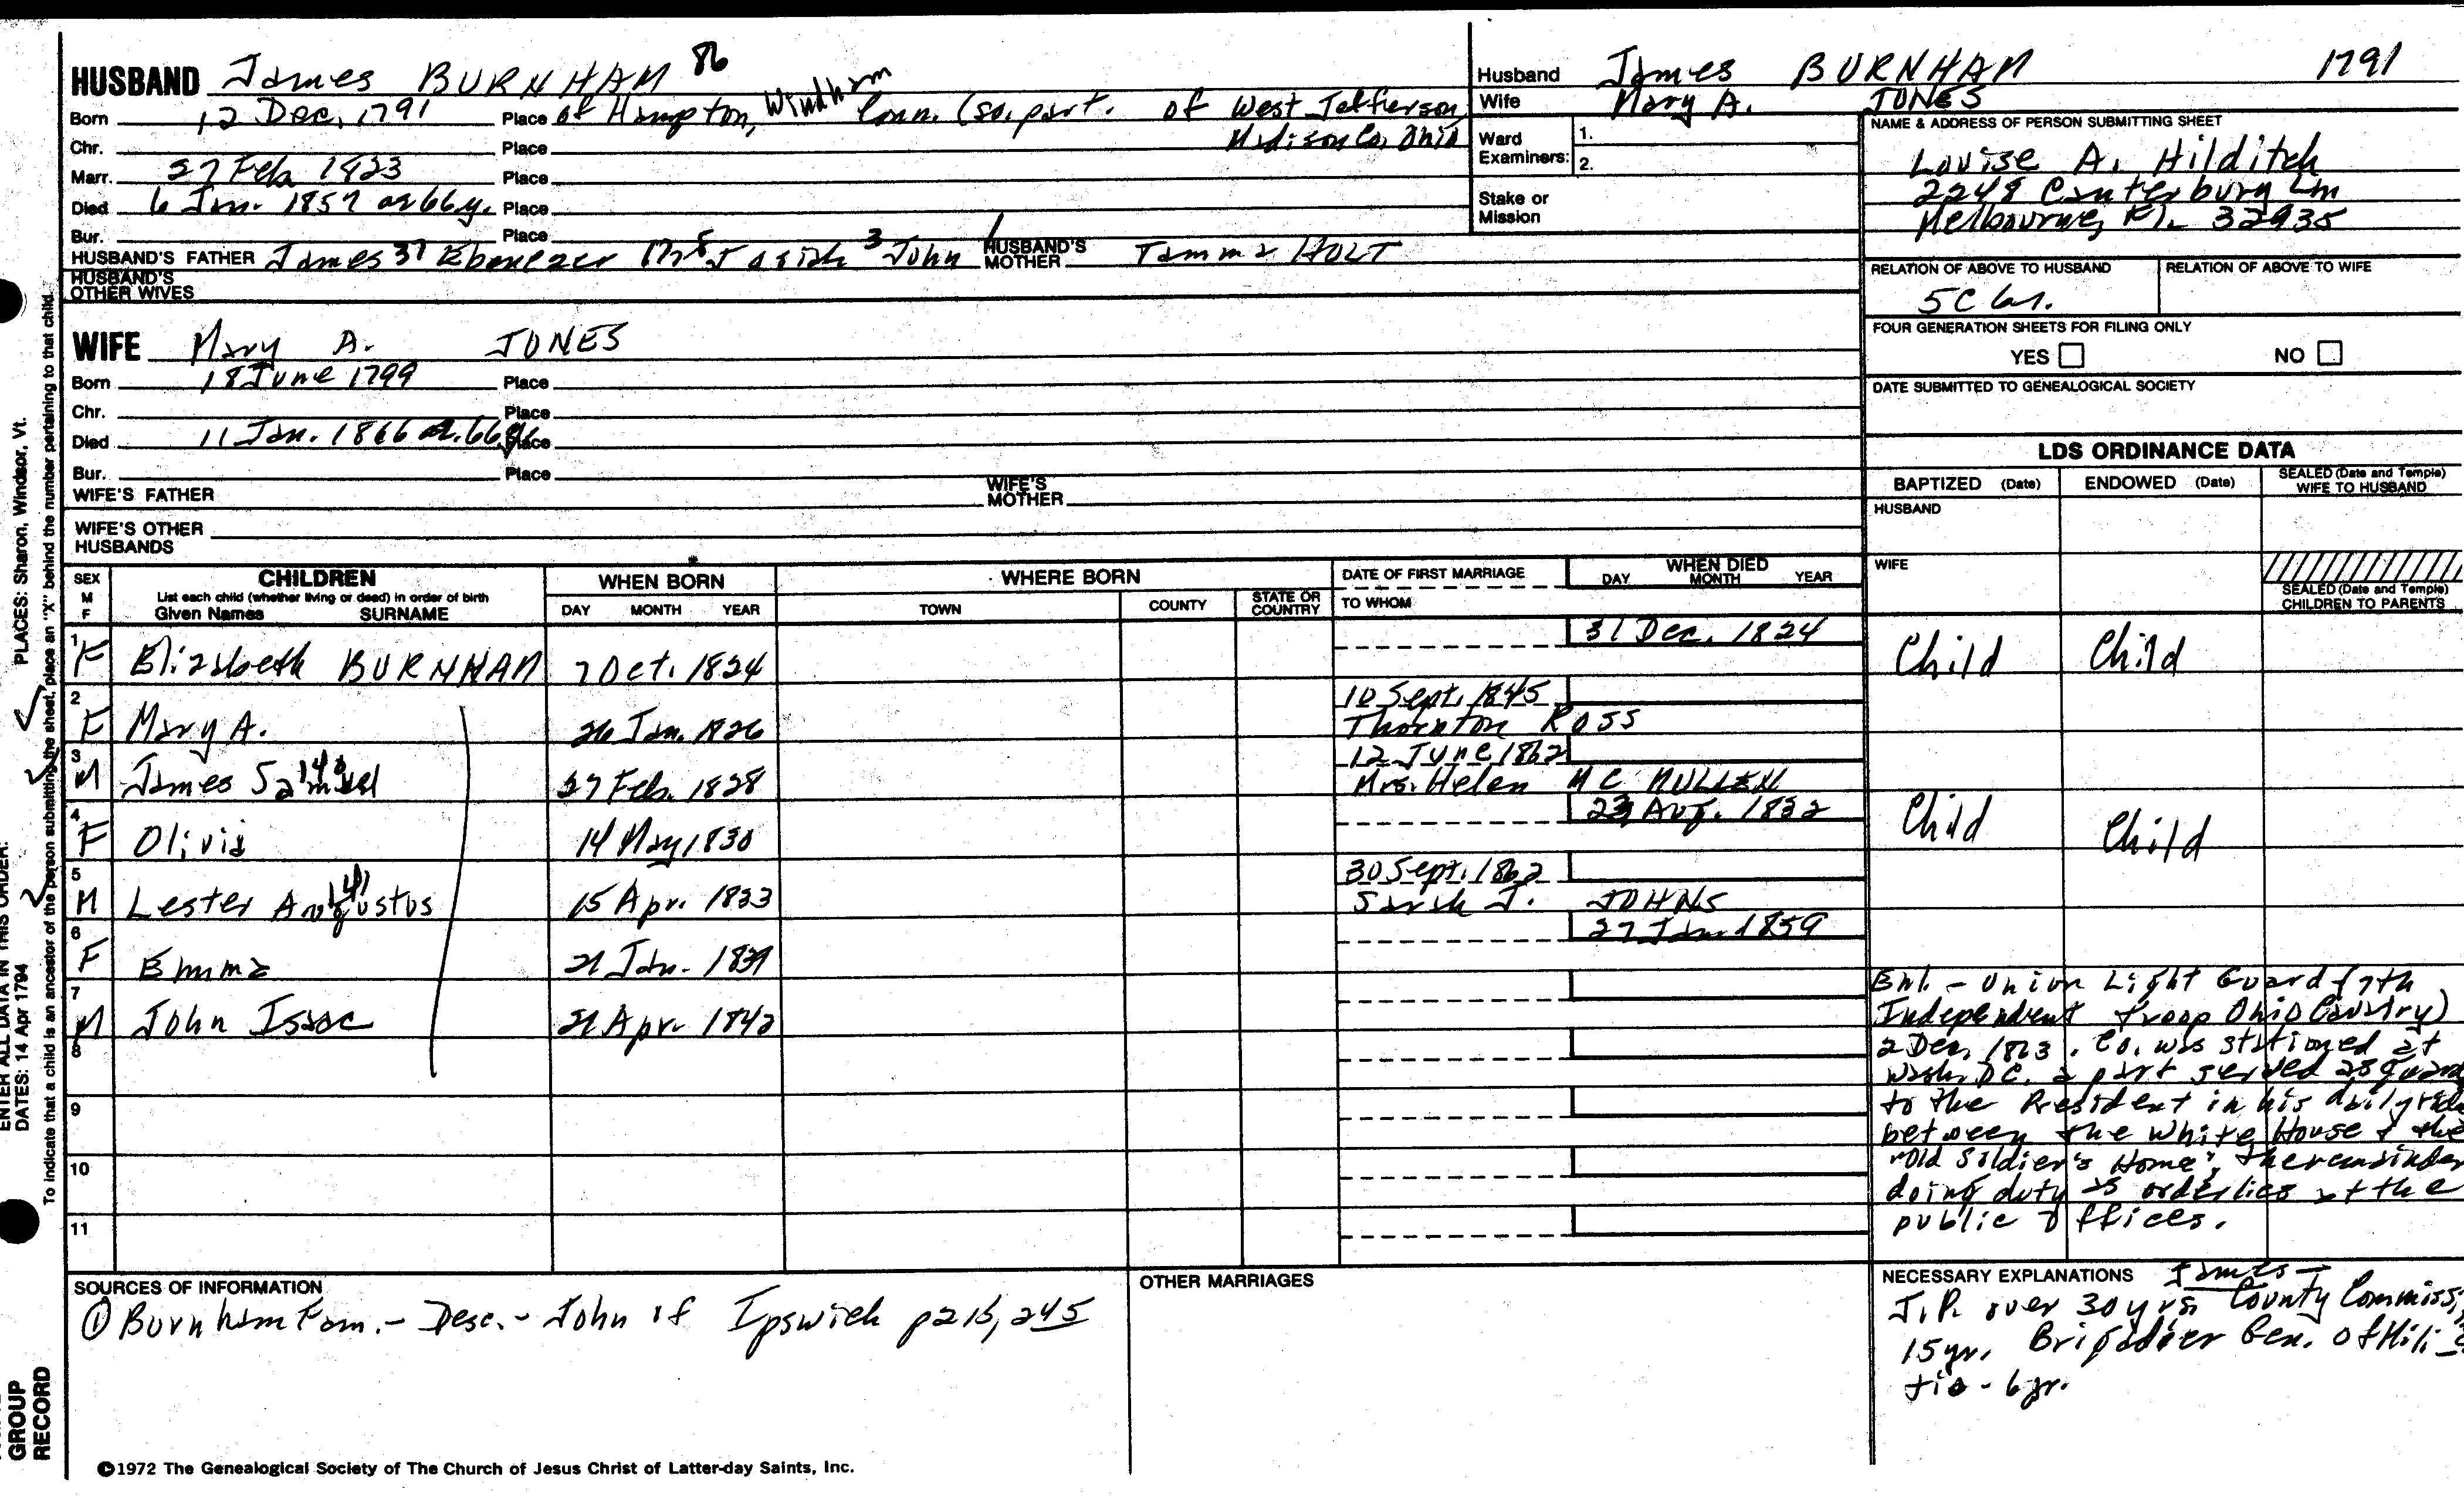 HUSBAND James BURNHAM 86
Born 12 Dec. 1791 Place of Hampton, Windham Conn. (so. part. of West Jefferson,
Madison Co. Ohio
Chr. Place
Marr. 27 Feb. 1823 Place
Died 6 Jan. 1857 ae 66 y. Place
Bur. Place
HUSBAND'S FATHER James 37 Ebenezer Josiah 3 John 1 HUSBAND'S MOTHER Tamma HOLT
HUSBAND'S OTHER WIVES
Husband James BURNHAM 1791
Wife Mary A. JONES
Ward Examiners: 1.
2.
Stake or Mission
NAME & ADDRESS OF PERSON SUBMITTING SHEET
Louise A. Hilditch
2248 Canterbury Ln
Melbourne, Fl. 32935
RELATION OF ABOVE TO HUSBAND RELATION OF ABOVE TO WIFE
5C
FOUR GENERATION SHEETS FOR FILING ONLY
YES NO
DATE SUBMITTED TO GENEALOGICAL SOCIETY
WIFE Mary A. JONES
Born 18 June 1799 Place
Chr. Place
Died 11 Jan. 1866 ae. 66 Place
Bur. Place
WIFE'S FATHER WIFE'S MOTHER
WIFE'S OTHER HUSBANDS
LDS ORDINANCE DATA
BAPTIZED (Date) ENDOWED (Date) SEALED (Date and Temple) WIFE TO HUSBAND
HUSBAND
WIFE
SEALED (Date and Temple) CHILDREN TO PARENTS
SEX M F CHILDREN WHEN BORN WHERE BORN DATE OF FIRST MARRIAGE WHEN DIED
List each child (whether living or dead) in order of birth
Given Names SURNAME DAY MONTH YEAR TOWN COUNTY STATE OR COUNTRY TO WHOM DAY MONTH YEAR
1 F Elizabeth BURNHAM 7 Oct. 1824 31 Dec. 1824 Child Child
2 F Mary A. 26 Jan. 1826 10 Sept. 1845
Thornton ROSS
3 M James Samuel 140 27 Feb. 1828 12 June 1862
Mrs. Helen MC MULLEN
4 F Olivia 14 May 1830 Aug. 1832 Child Child
5 M Lester Augustus 141 15 Apr. 1833 30 Sept. 1862
Sarah J. JOHNS
6 F Emma 21 Jan. 27 Jan. 1859
7 M John Isaac 21 Apr. 1842
8
9
10
11
Enl. - Union Light Guard (7th
Independent troop Ohio Cavalry)
2 Dec. 1863. Co. was stationed at
Wash. DC. a part served as guard
to the President in his daily
between the White House & the
"Old Soldier's Home", the remainder
doing duty as orderlies at the
public offices.
SOURCES OF INFORMATION
① Burnham Fam. - Desc. - John of Ipswich p 215, 245
OTHER MARRIAGES
NECESSARY EXPLANATIONS James -
J.P. over 30 yrs. County
15 yr. Brigadier Gen. of Mili-
tia - 6 yr.
©1972 The Genealogical Society of The Church of Jesus Christ of Latter-day Saints, Inc.
ENTER ALL DATA IN THIS ORDER:
DATES: 14 Apr 1794 PLACES: Sharon, Windsor, Vt.
To indicate that a child is an ancestor of the person submitting the sheet, place an "X" behind the number pertaining to that child.
GROUP
RECORD